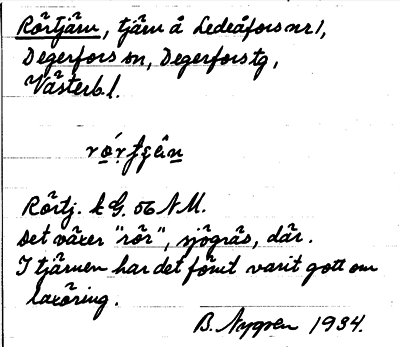 Rörtjärn, tjärn å Ledeåfors nr 1,
Degerfors sn, Degerfors tg,
Västerb. l.
Rörtj. k G. 56 NM.
Det växer "rör", sjögräs, där.
I tjärnen har det förut varit gott om
laxöring.
B. Nygren 1934.